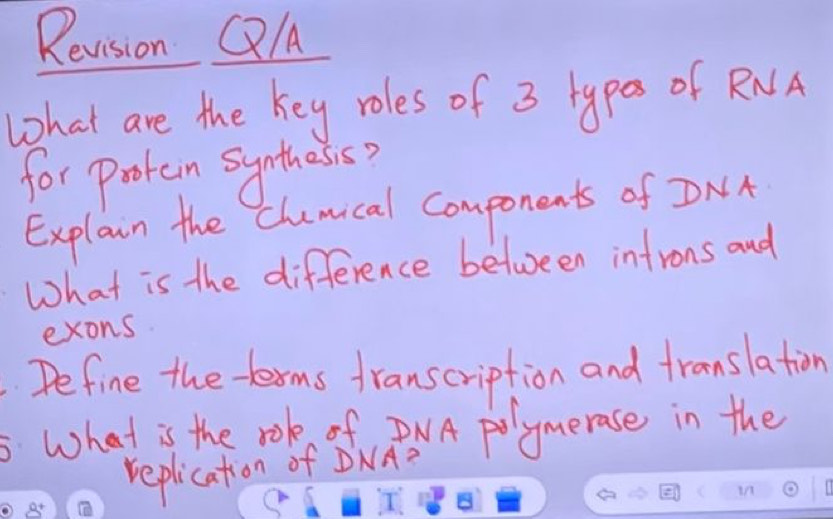 Revision Q/A
What are the key roles of 3 types of RNA
for Protein Synthesis?
Explain the Chemical Components of DNA
What is the difference between introns and
exons.
Define the terms transcription and translation
5. What is the role of DNA polymerase in the
replication of DNA?
1/1